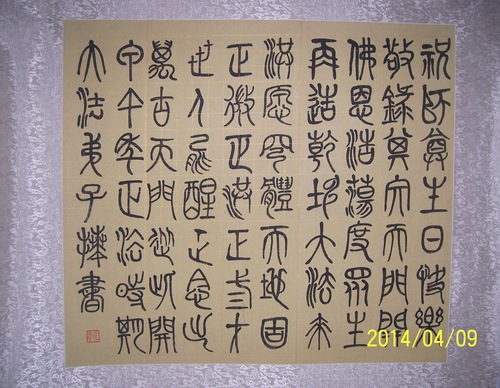 祝師尊生日快樂
敬錄門開
佛恩浩蕩度眾生
再造乾坤大法來
洪愿體天地固
正正洪正三才
世人醒正念出
萬古天門從此開
甲午年正法時期
大法弟子捧書
2014/04/09